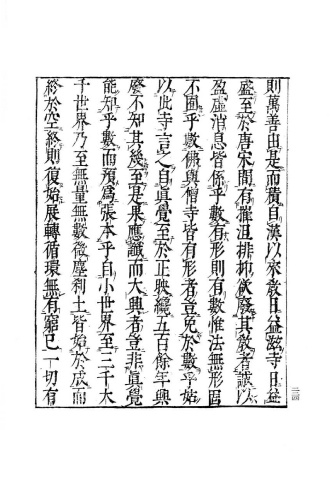 則萬善出是而貲自漢以來教日益盛寺日益
盛至於唐宋間有擁沮排抑欲廢其教者誠以
盈虛消息皆係乎數有形則有數惟法無形固
不囿乎數佛與僧寺皆有形者豈免於數乎姑
以此寺言之自眞覺至於正映纔五百餘年興
廢不知其幾至是果應讖而大興者豈非眞覺
能知乎數而預爲張本乎自小世界至三千大
千世界乃至無量無數微塵刹土皆始於成而
終於空終則復始展轉循環無有窮已一切有